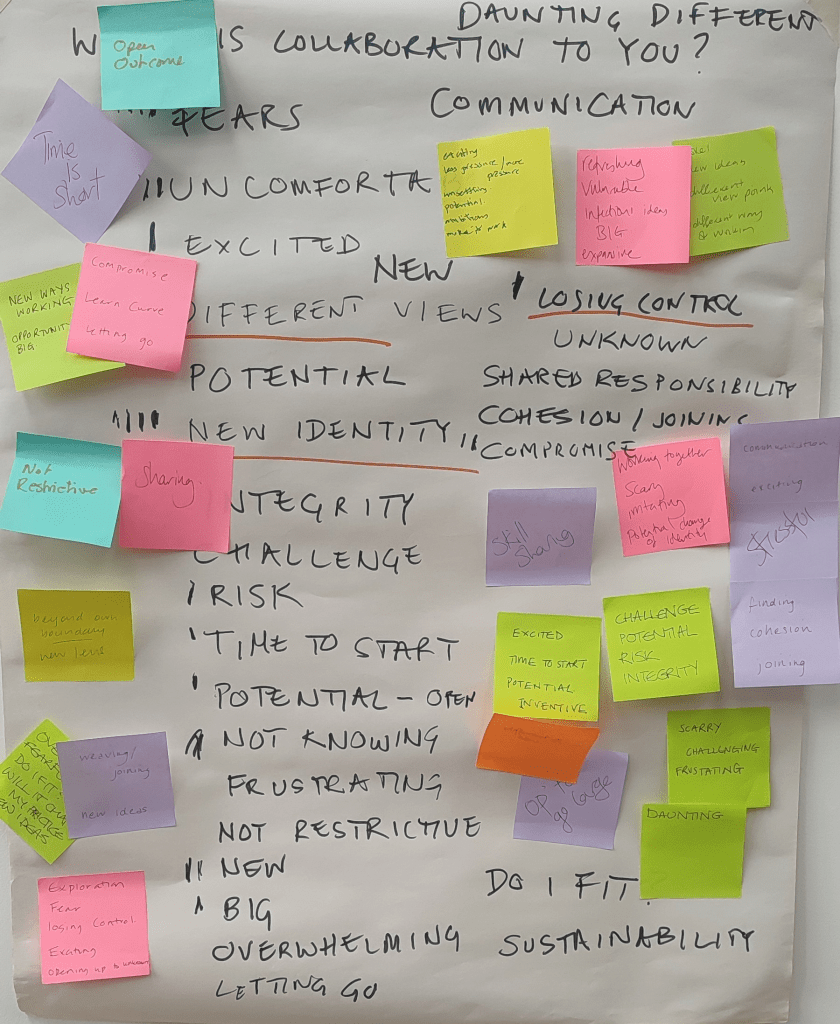 DAUNTING DIFFERENT
W IS COLLABORATION TO YOU?
Open
Outcome
FEARS
COMMUNICATION
Time
Is
Short
UNCOMFORTA
exciting
less pressure / more
pressure
unsettling
potential
refreshing
Vulnerable
Infectious ideas
BIG
expansive
new ideas
different view points
different ways
of writing
EXCITED
NEW
NEW WAYS
WORKING
OPPORTUNIT
BIG
Compromise
Learn Curve
Letting go
DIFFERENT VIEWS
LOSING CONTROL
UNKNOWN
POTENTIAL
SHARED RESPONSIBILITY
COHESION / JOINING
NEW IDENTITY
COMPROMISE
Not
Restrictive
Sharing
INTEGRITY
Skill
Sharing
Working together
Scary
irritating
Potential change
of identity
communication
exciting
stressful
CHALLENGE
RISK
beyond own
boundary
new lens
TIME TO START
EXCITED
TIME TO START
POTENTIAL
INVENTIVE
CHALLENGE
POTENTIAL
RISK
INTEGRITY
finding
cohesion
joining
POTENTIAL - OPEN
NOT KNOWING
OVER
FEARS
DO I FIT?
WILL IT
MY PRACTICE
NEW IDEAS
weaving/
joining
new ideas
FRUSTRATING
SCARRY
CHALLENGING
FRUSTATING
NOT RESTRICTIVE
DAUNTING
NEW
DO I FIT.
BIG
Exploration
Fear
losing control
Exciting
opening up to unknown
OVERWHELMING
SUSTAINABILITY
LETTING GO